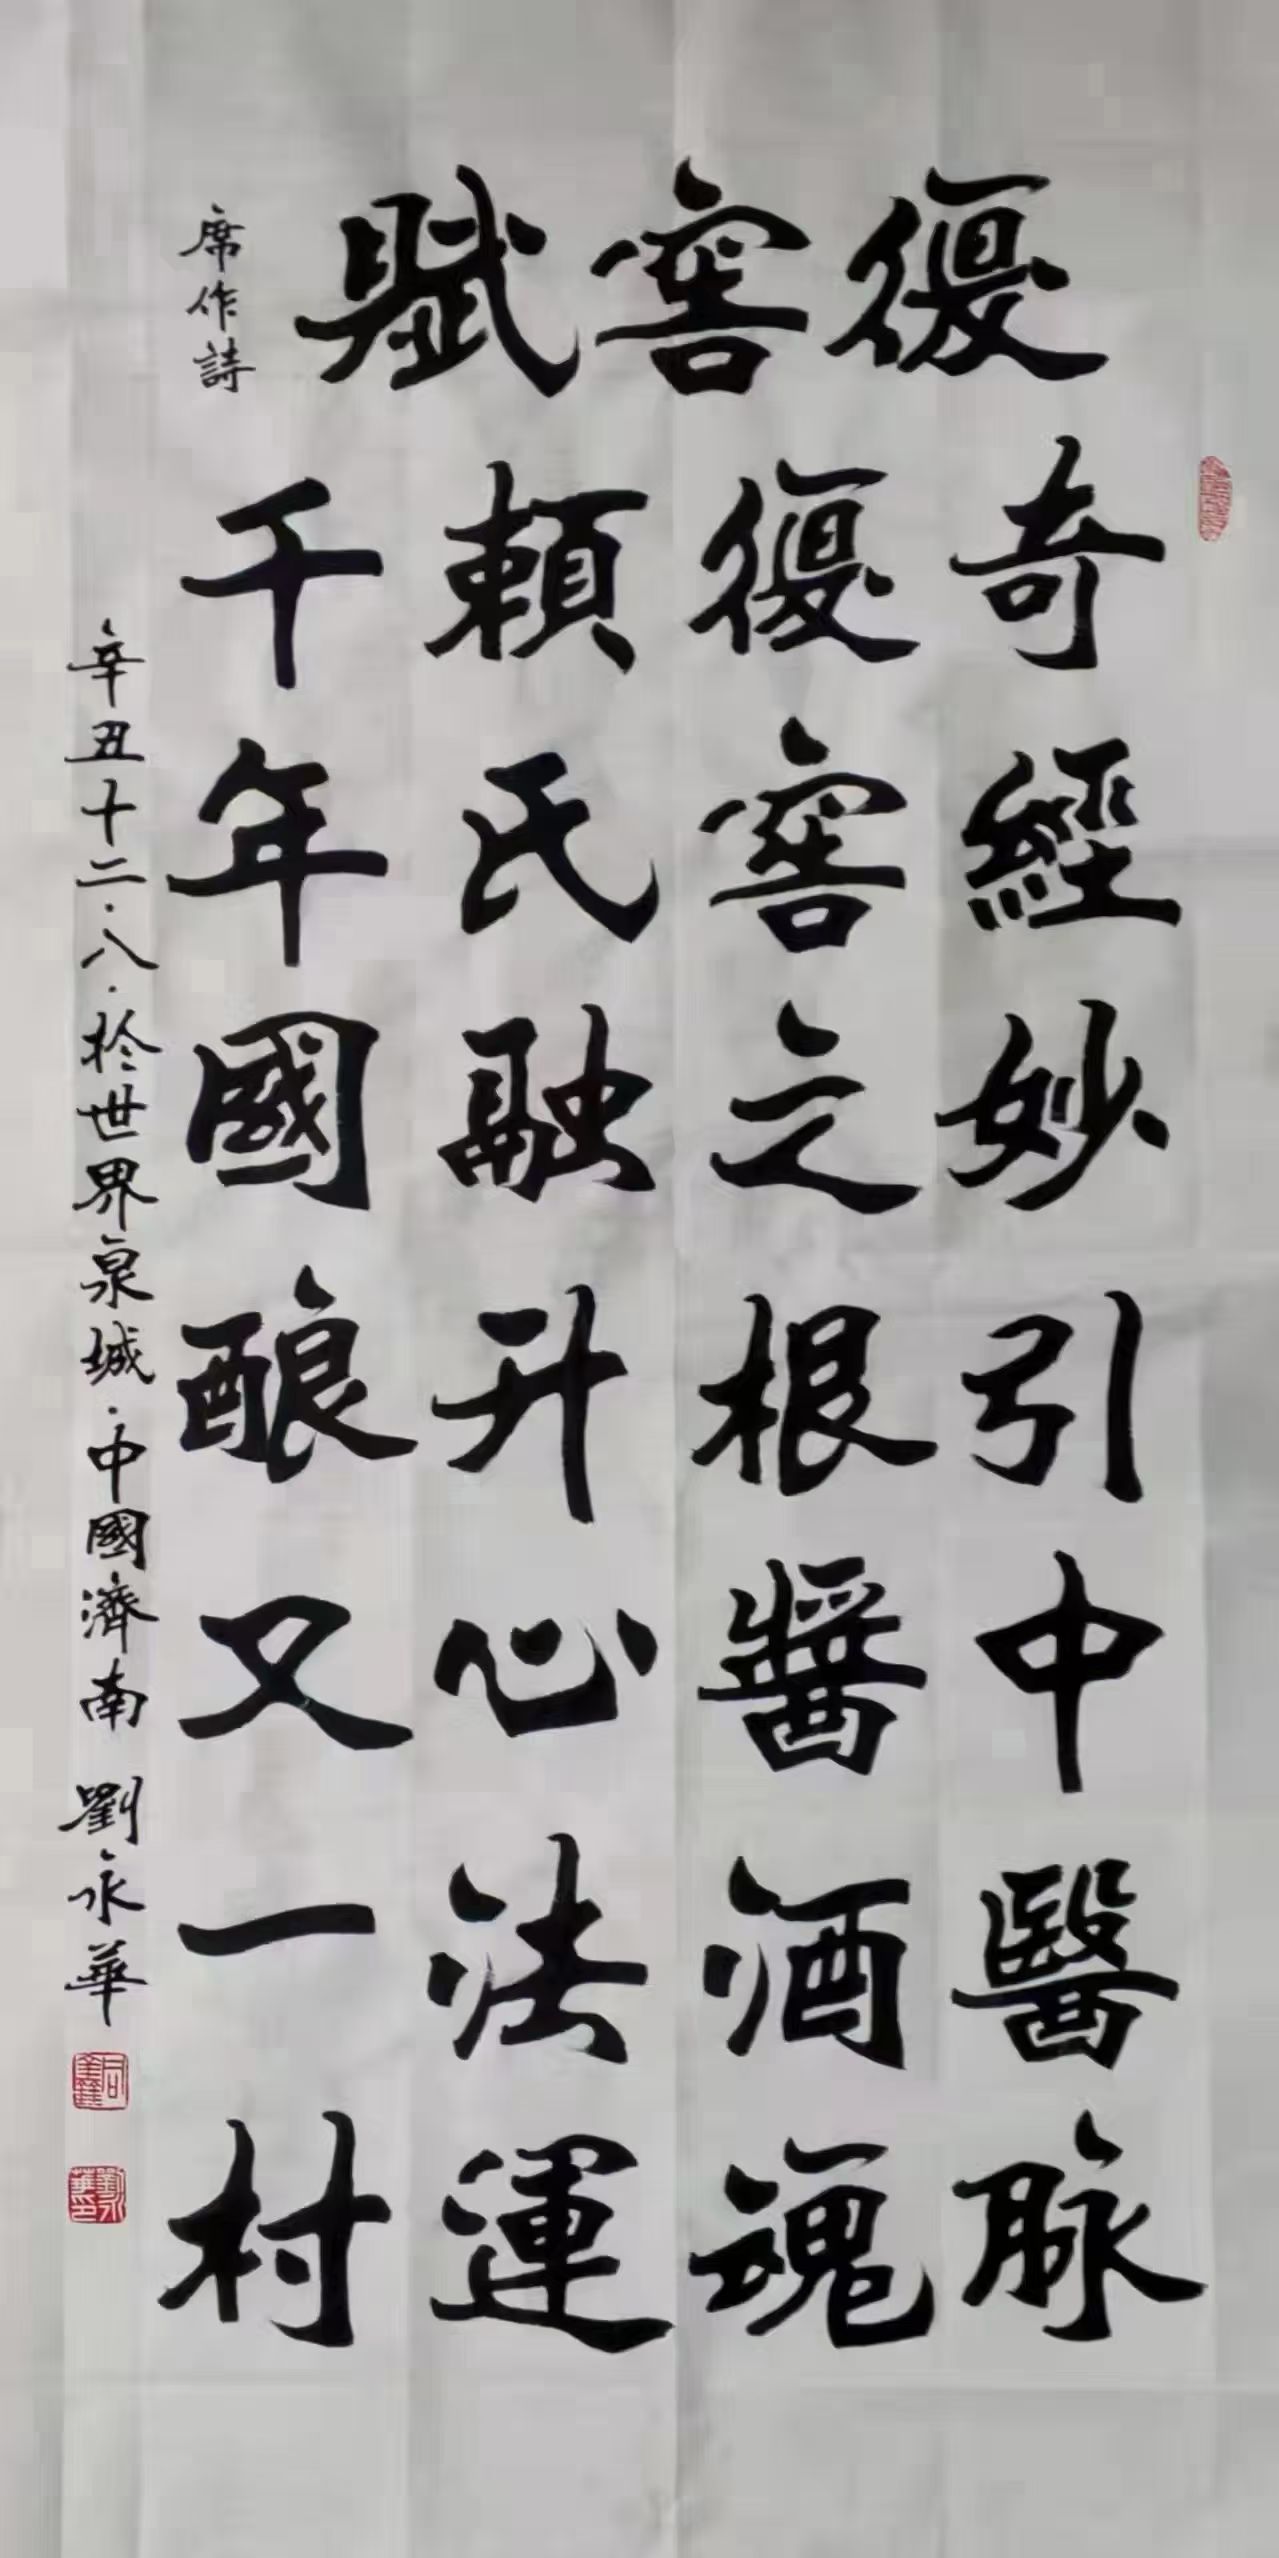 復窖賦
席作詩
奇經妙引中醫脉
復窖之根醬酒魂
賴氏融升心法運
千年國酿又一村
辛丑十二·八·於世界泉城·中國濟南 劉永華